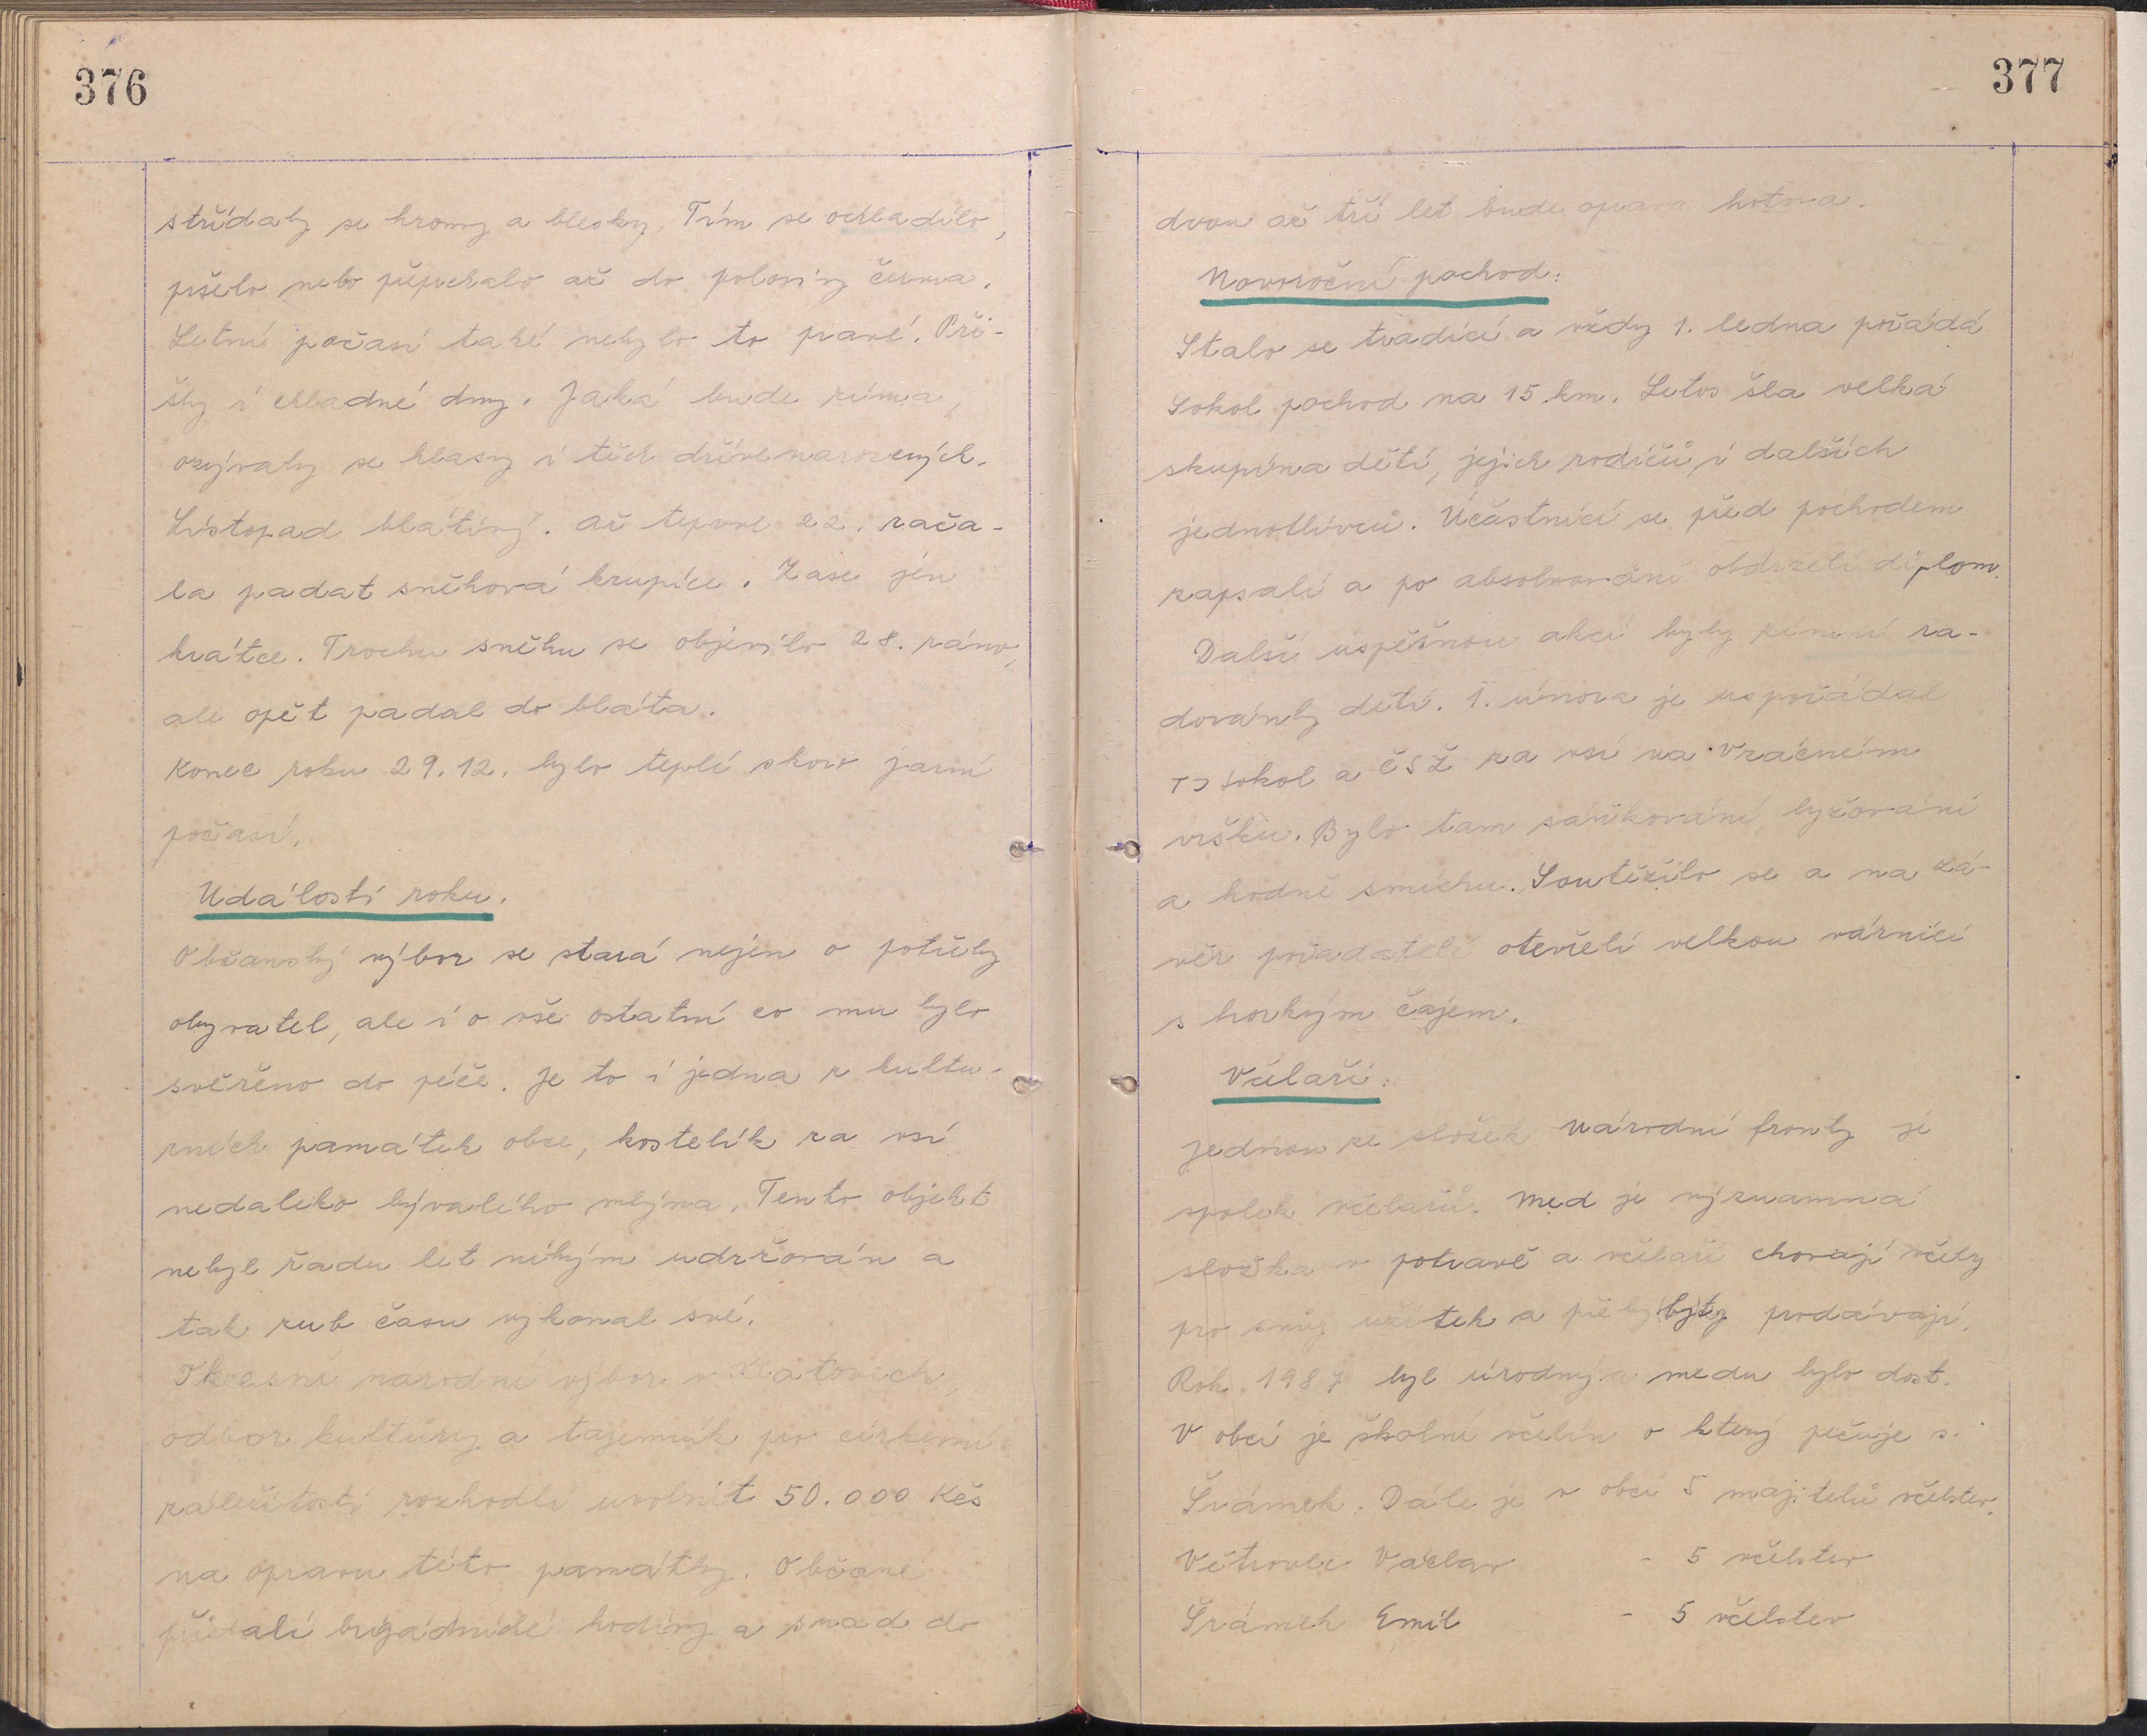 376
střídaly se hromy a blesky. Tím se ochladilo,
pršelo nebo přeprchalo až do poloviny června.
Letní počasí také nebylo to pravé. Při-
šly i chladné dny. Jaká bude zima,
ozývaly se hlasy i těch dřívenarozených.
Listopad blátivý. až teprve 22. zača-
la padat sněhová krupice. Zase jen
krátce. Trochu sněhu se objevilo 28. ráno,
ale opět padal do bláta.
Konec roku 29.12. bylo teplé skoro jarní
počasí.
Události roku.
Občanský výbor se stará nejen o potřeby
obyvatel, ale i o vše ostatní co mu bylo
svěřěno do péče. Je to i jedna z kultu-
rních památek obce, kostelík za vsí
nedaleko bývalého mlýna. Tento objekt
nebyl řadu let nikým udržován a
tak zub času vykonal své.
Okresní národní výbor v Klatovech,
odbor kultúry a tajemník pro církevní
záležitosti rozhodli uvolnit 50.000 Kčs
na opravu této památky. Občané
přidali brigádnické hodiny a snad do
377
dvou až tří let bude oprava hotova.
Novoroční pochod:
Stalo se tradicí a vždy 1. ledna pořádá
Sokol pochod na 15 km. Letos šla velká
skupina dětí, jejich rodičů, i dalších
jednotlivců. Účástníci se před pochodem
zapsali a po absolvování obdrželi diplom.
Další úspěšnou akcí byly zimní ra-
dovánky dětí. 1. února je uspořádal
TJ Sokol a ČSŽ za vsí na Vračném
vršku. Bylo tam sáňkování, lyžování
a hodně smíchu. Soutěžilo se a na zá-
věr pořadatelé otevřeli velkou várnici
s horkým čajem.
Včelaři:
Jednou ze složek Národní fronty je
spolek včelařů. Med je významná
složka v potravě a včelaři chovají včely
pro svůj užitek a přebytky prodávají.
Rok 1987 byl úrodný a medu bylo dost.
V obci je školní včelín o který pečuje s.
Šrámek. Dále je v obci 5 majitelů včelstev.
Větrovec Václav - 5 včelstev
Šrámek Emil - 5 včelstev